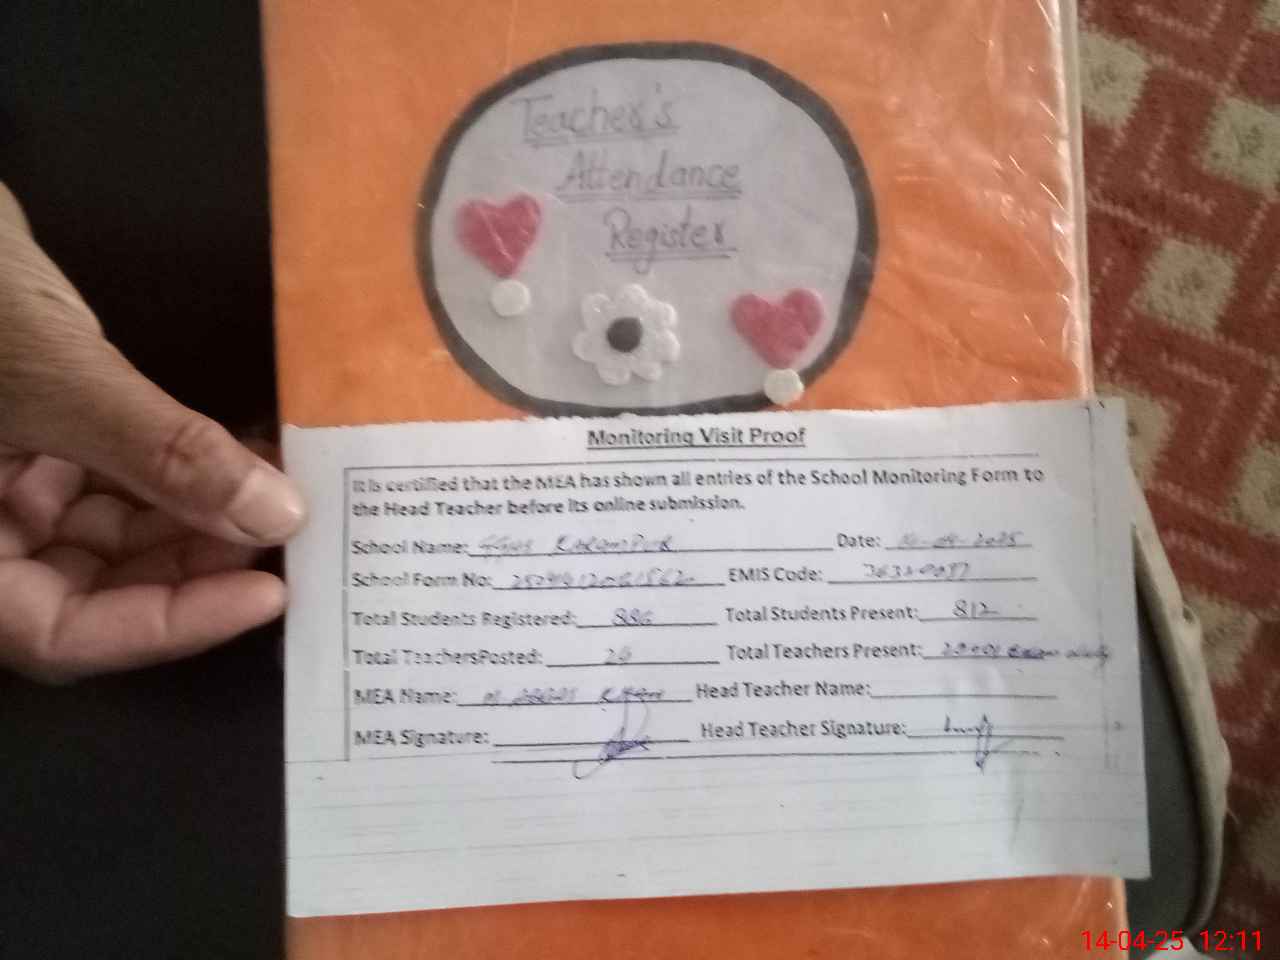 Teacher's
Attendance
Register
Monitoring Visit Proof
It is certified that the MEA has shown all entries of the School Monitoring Form to
the Head Teacher before its online submission.
School Name: Date: 14-04-2025
School Form No: EMIS Code:
Total Students Registered: 886 Total Students Present: 812
Total TeachersPosted: 26 Total Teachers Present:
MEA Name: Head Teacher Name:
MEA Signature: Head Teacher Signature:
14-04-25 12:11